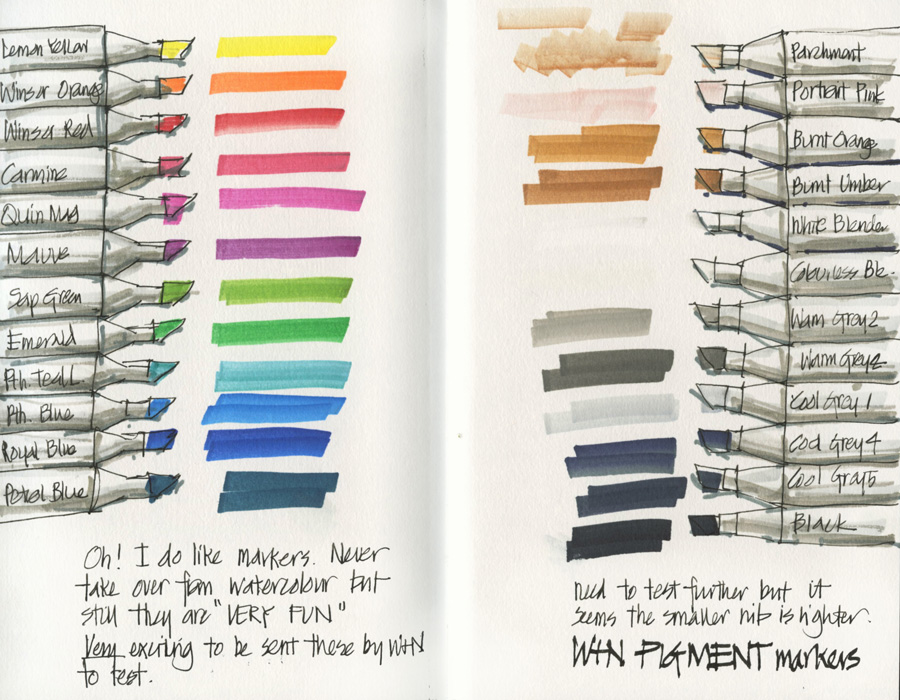 Lemon Yellow
Winsor Orange
Winsor Red
Carmine
Quin Mag
Mauve
Sap Green
Emerald
Pth. Teall
Pth. Blue
Royal Blue
Petrol Blue
Oh! I do like markers. Never
take over from watercolour but
still they are "VERY FUN"
Very exciting to be sent these by W+N
to test.
Parchment
Portrait Pink
Burnt Orange
Burnt Umber
White Blender
Colourless Ble.
Warm Grey 2
Warm Grey
Cool Grey 1
Cool Grey 4
Cool Gray 5
Black
need to test further but it
seems the smaller nib is lighter.
W+N PIGMENT markers